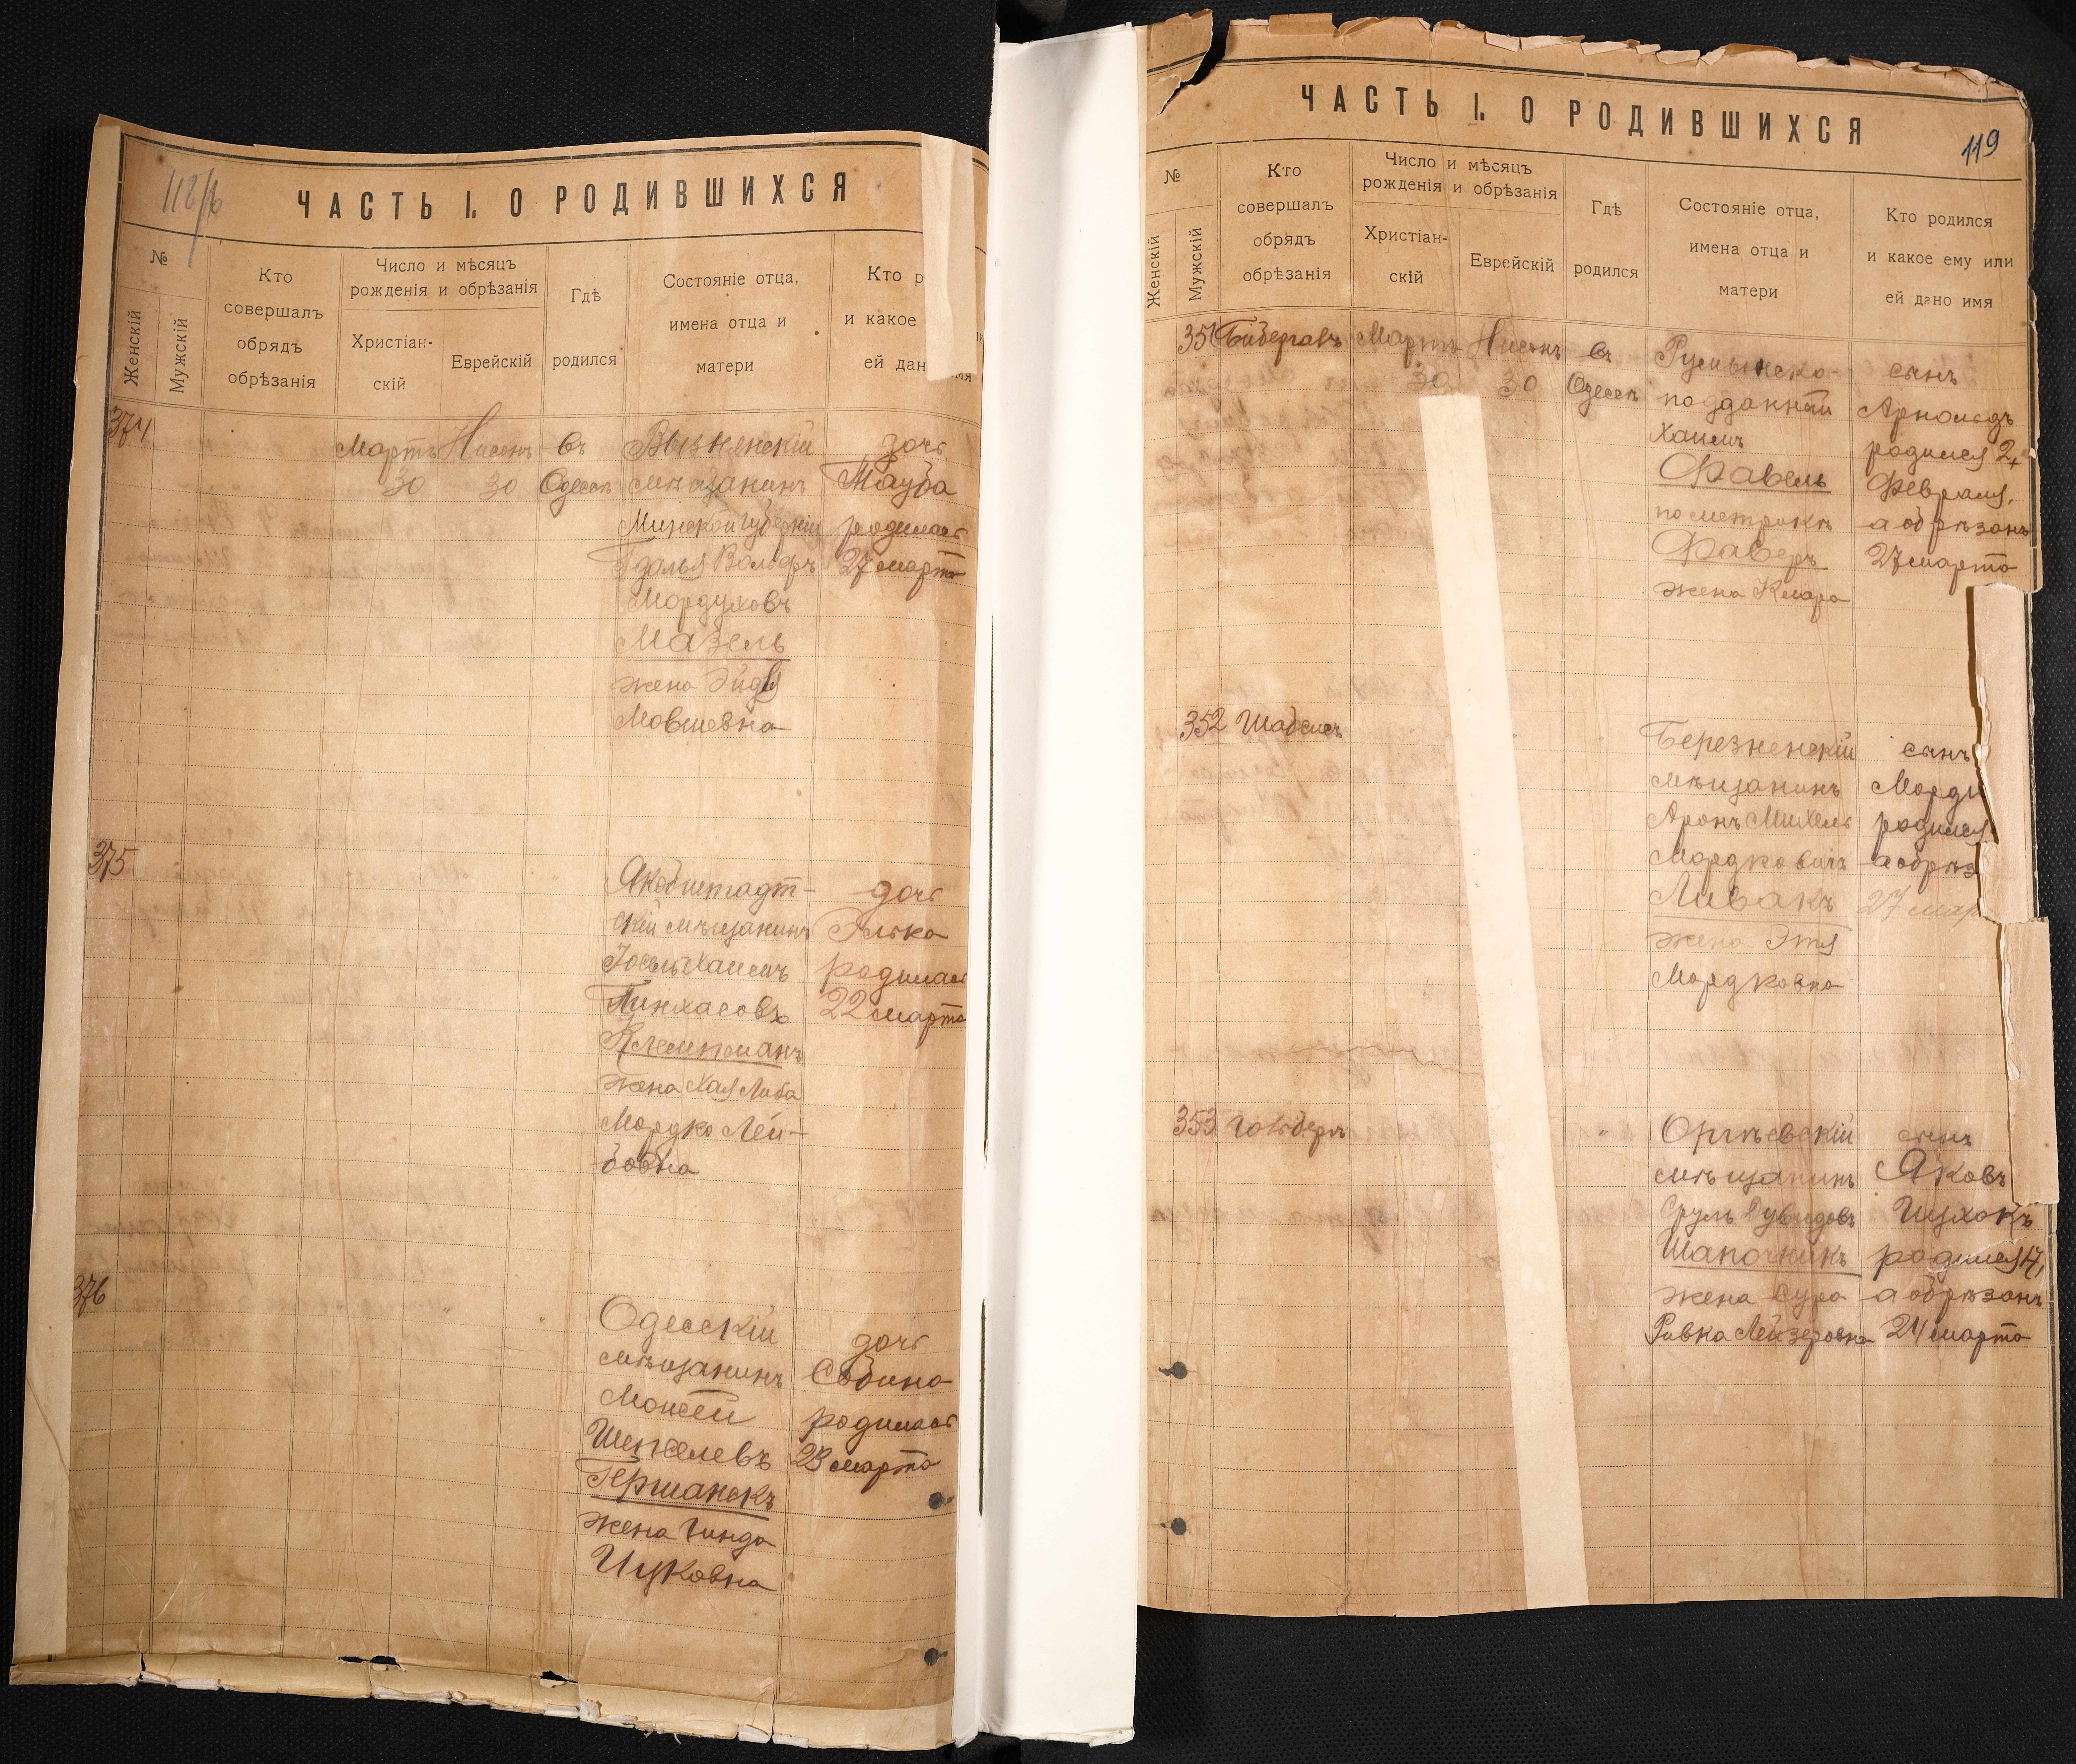 118/б
ЧАСТЬ I. О РОДИВШИХСЯ
№
Женскій
Мужскій
Кто
совершалъ
обрядъ
обрѣзанія
Число и мѣсяцъ
рожденія и обрѣзанія
Христіан-
скій
Еврейскій
Гдѣ
родился
Состояніе отца,
имена отца и
матери
Кто р
и какое
ей дан
374
Мартъ
30
Нисонъ
30
въ
Одессѣ
мѣщанинъ
Минской губерніи
Гдалья Вольфъ
Мордуховъ
Мазель
жена Эйдля
Мовшевна
дочь
Тауба
родилась
27 марта
375
Якобштадт-
скій мѣщанинъ
Іосель Хаимъ
Пинхасовъ
Клемпманъ
жена Хая Либа
Мордко Лей-
бовна
дочь
Элька
родилась
22 марта
376
Одесскій
мѣщанинъ
Моисей
Шепселевъ
жена Гинда
Ицковна
дочь
Сабина
родилась
23 марта
119
ЧАСТЬ I. О РОДИВШИХСЯ
№
Женскій
Мужскій
Кто
совершалъ
обрядъ
обрѣзанія
Число и мѣсяцъ
рожденія и обрѣзанія
Христіан-
скій
Еврейскій
Гдѣ
родился
Состояніе отца,
имена отца и
матери
Кто родился
и какое ему или
ей дано имя
351
Бибергалъ
Мартъ
30
Нисонъ
30
въ
Одессѣ
Румынско-
подданный
Хаимъ
Фавель
по метрикѣ
Фаверъ
жена Клара
сынъ
Арнольдъ
родился
Февраля,
а обрѣзанъ
27 марта
352
Березненскій
мѣщанинъ
Аронъ Михель
Мордковичъ
Ливакъ
жена Этя
Мордковна
сынъ
Морд
родился
а обрѣз
27 мар
353
Оргѣевскій
мѣщанинъ
Сруль Дувидовъ
Шапочникъ
жена Сура
Ривка Лейзеровна
сынъ
Яковъ
Ицхокъ
родился 17,
а обрѣзанъ
24 марта